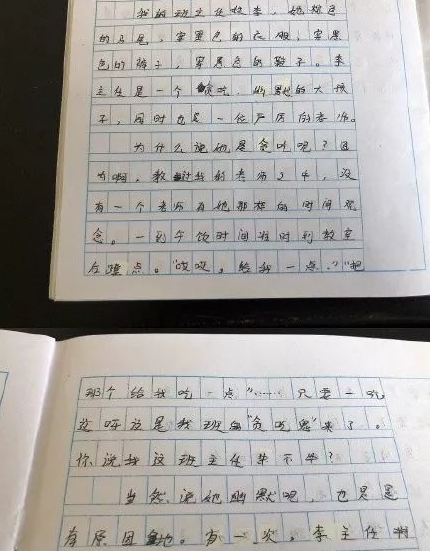 我的班主任姓李，她粉色
的马尾，穿黑色的衣服，穿黑
色的裤子，穿黑色的鞋子。李
主任是一个贪吃、幽默的大孩
子，同时也是一位严厉的老师。
为什么说她是贪吃呢？因
为啊，教过我的老师了中，没
有一个老师有她那样的时间观
念。一到午饭时间准时到教室
左蹭点。“哎哎，给我一点，”“把
那个给我吃一点”……只要一吃
这呀这是我班的“贪吃鬼”来了。
你说我这班主任
当然说她幽默吧，也只是
有原因地。有一次，李主任